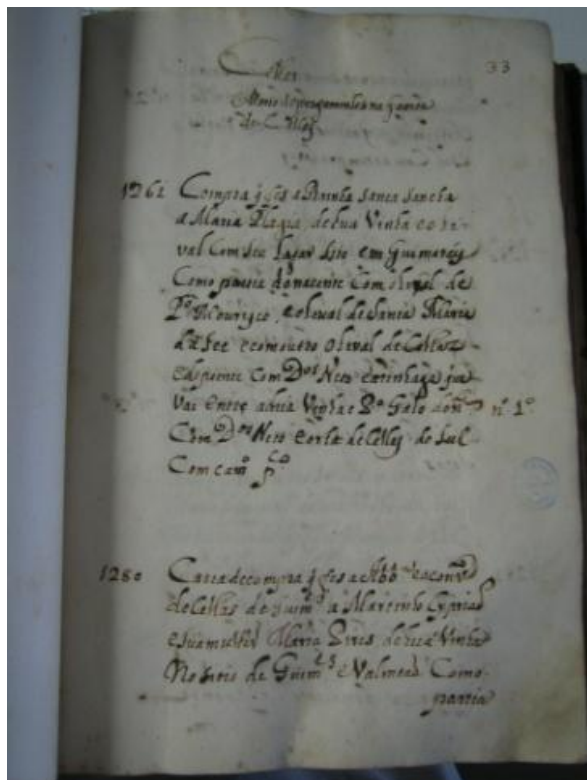 33
Cellas
Maço de pergaminhos na gaveta
de Cellas
1262 Compra q̃ fes a Rainha sancta sancha
a Maria Plagia, de hua Vinha e oli-
val Com seu lagar sito em Guimareis
Como partia do nacente Com olival de
P.º Mourisco, e olival de Santa Maria
da See e com outro olival de Cellas
e do poente Com D.os Neto e azinhaga que
vai entre a dita Vinha e
n.º 1.º
Com D.os Neto e orta de Cellas do sul
Com cam.º p.co
1280 Carta de compra q̃ fes a Abb.ª e o conv.º
de Cellas de Guim.s a Martinho
e sua molher Maria Pires de hua Vinha
No sitio de Guim.es e Valmeaõ Como
partia